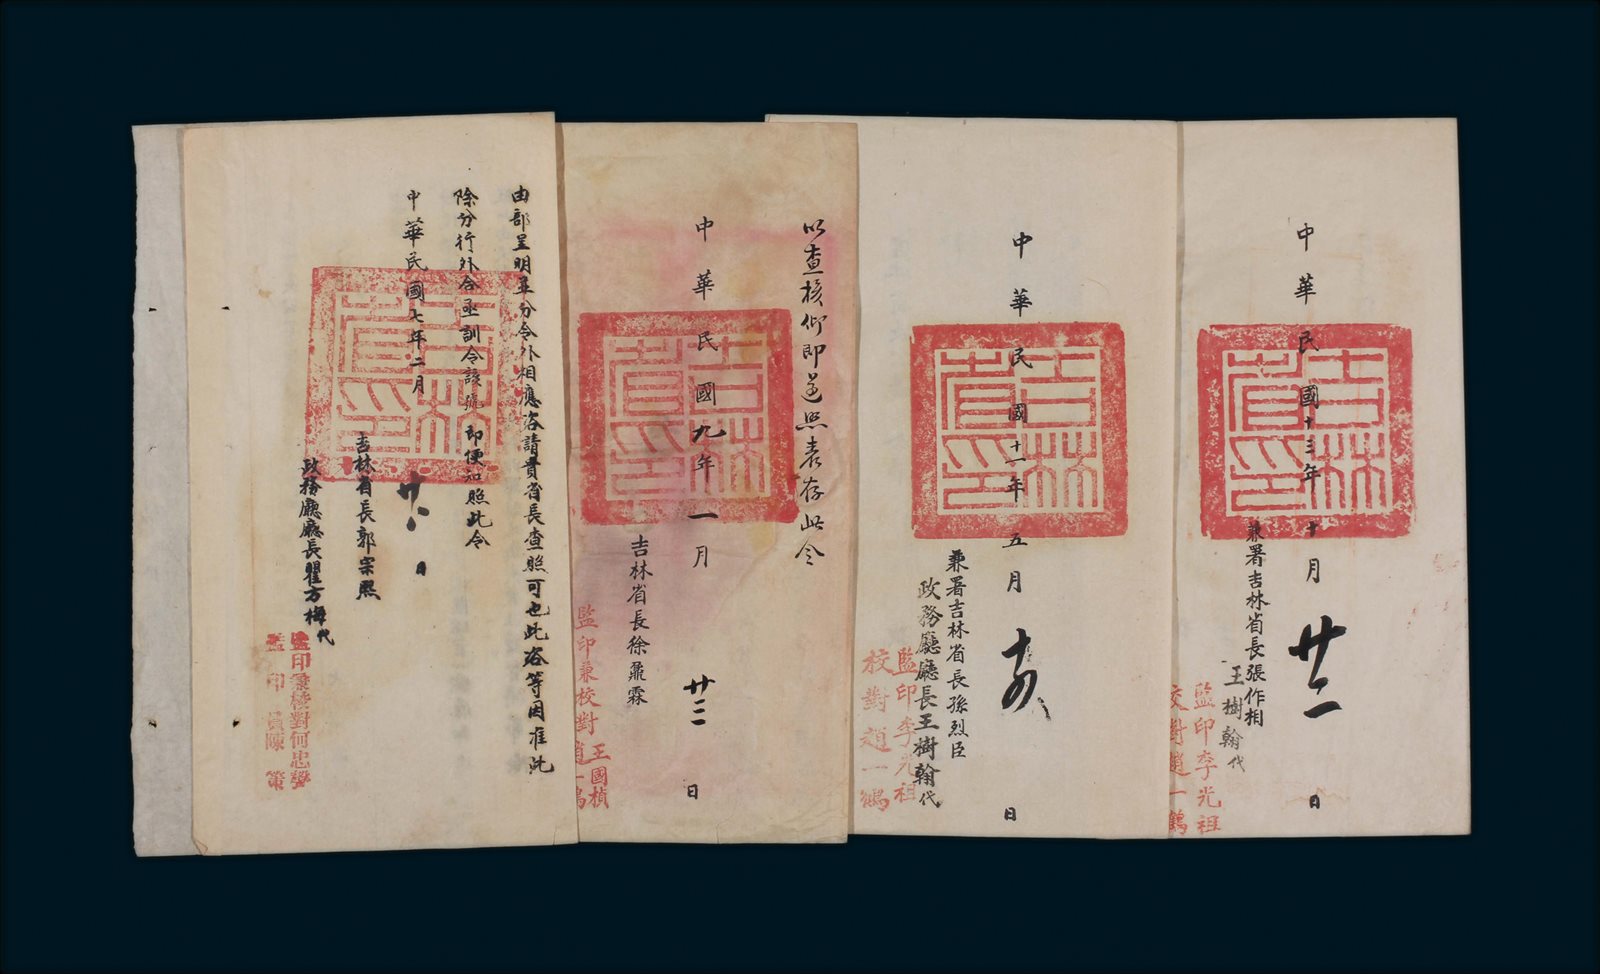 由部呈明並分令外相應咨請貴省長查照可也此咨等因准此
除分行外合亟訓令該號即便知照此令
中華民國七年二月廿八日
吉林省長郭宗熙
政務廳廳長瞿方梅代
監印兼校對何忠
監印員陳策
吉林省印
以查核仰即遵照表存此令
中華民國九年一月廿三日
吉林省長徐鼐霖
監印兼校對王國楨趙一鶴
吉林省印
中華民國十一年五月十四日
兼署吉林省長孫烈臣
政務廳廳長王樹翰代
監印李光祖
校對趙一鶴
吉林省印
中華民國十三年十月廿二日
兼署吉林省長張作相
王樹翰代
監印李光祖
校對趙一鶴
吉林省印